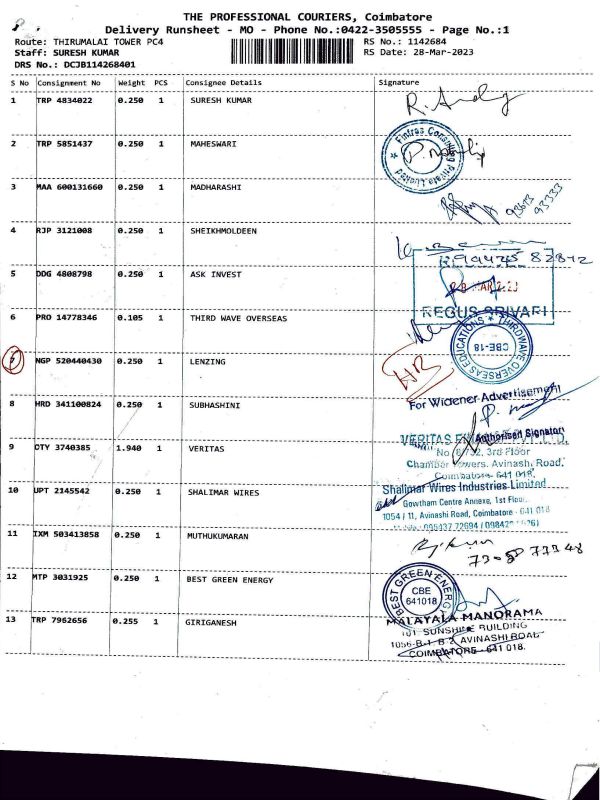 THE PROFESSIONAL COURIERS, Coimbatore
Delivery Runsheet - MO - Phone No.:0422-3505555 - Page No.:1
Route: THIRUMALAI TOWER PC4
RS No.: 1142684
Staff: SURESH KUMAR
RS Date: 28-Mar-2023
DRS No.: DCJB114268401
S No Consignment No Weight PCS Consignee Details Signature
1 TRP 4834022 0.250 1 SURESH KUMAR
2 TRP 5851437 0.250 1 MAHESWARI
Finfras Consulting Private Limited
3 MAA 600131660 0.250 1 MADHARASHI
4 RJP 3121008 0.250 1 SHEIKHMOLDEEN
5 DDG 4808798 0.250 1 ASK INVEST
REGUS SRIVARI
6 PRO 14778346 0.105 1 THIRD WAVE OVERSEAS
THIRDWAVE OVERSEAS EDUCATIONS
CBE-18
7 NGP 520440430 0.250 1 LENZING
HR
For Widener Advertisement
8 HRD 341100824 0.250 1 SUBHASHINI
Authorised Signatory
9 OTY 3740385 1.940 1 VERITAS
VERITAS
3rd Floor
Chamber Towers. Avinashi Road.
Coimbatore- 641 018.
10 UPT 2145542 0.250 1 SHALIMAR WIRES
Shalimar Wires Industries Limited
Gowtham Centre Annexe, 1st Floor,
1054 / 11, Avinashi Road, Coimbatore - 641 018
11 IXM 503413858 0.250 1 MUTHUKUMARAN
12 MTP 3031925 0.250 1 BEST GREEN ENERGY
BEST GREEN ENERGY
CBE
641018
13 TRP 7962656 0.255 1 GIRIGANESH
MALAYALA MANORAMA
101 SUNSHINE BUILDING
1056-B-1, B-2 AVINASHI ROAD
COIMBATORE - 641 018.